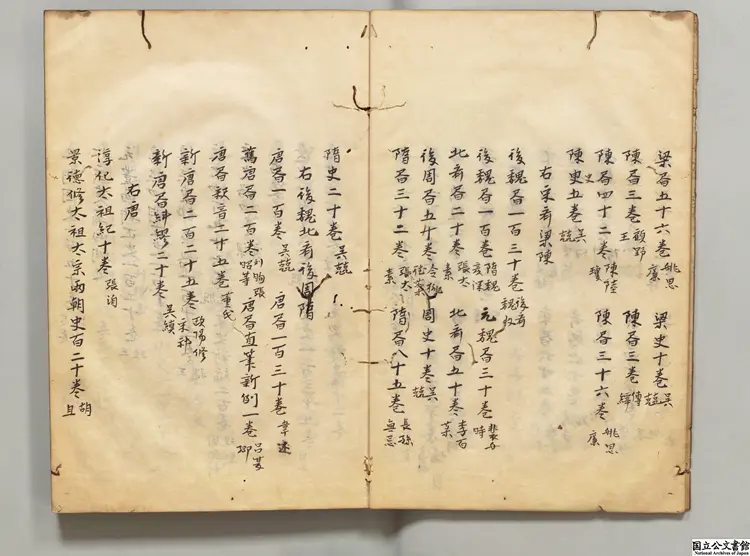 梁書五十六巻 姚思廉 梁史十巻 吳兢
陳書三巻 顧野王 陳書三巻 傅縡
陳書四十二巻 陳陸瓊 陳書三十六巻 姚思廉
陳史五巻 吳兢
右宋斉梁陳
後魏書一百三十巻 後斉魏収
後魏書一百巻 隋魏彦深 元魏書三十巻 裴安時
北斉書二十巻 張太素 北斉書五十巻 李百薬
後周書五十巻 令狐徳棻 周史十巻 吳兢
隋書三十二巻 張太素 隋書八十五巻 長孫無忌
隋史二十巻 吳兢
右後魏北斉後周隋
唐書一百巻 吳兢 唐書一百三十巻 韋述
旧唐書二百巻 刘昫張昭等 唐書直筆新例一巻 吕夏卿
唐書釈音二十五巻 董氏
新唐書二百二十五巻 欧陽修宋祁
新唐書糾繆二十巻 吳縝
右唐
淳化太祖紀十巻 張洎
景徳修太祖太宗両朝史百二十巻 胡旦
国立公文書館
National Archives of Japan